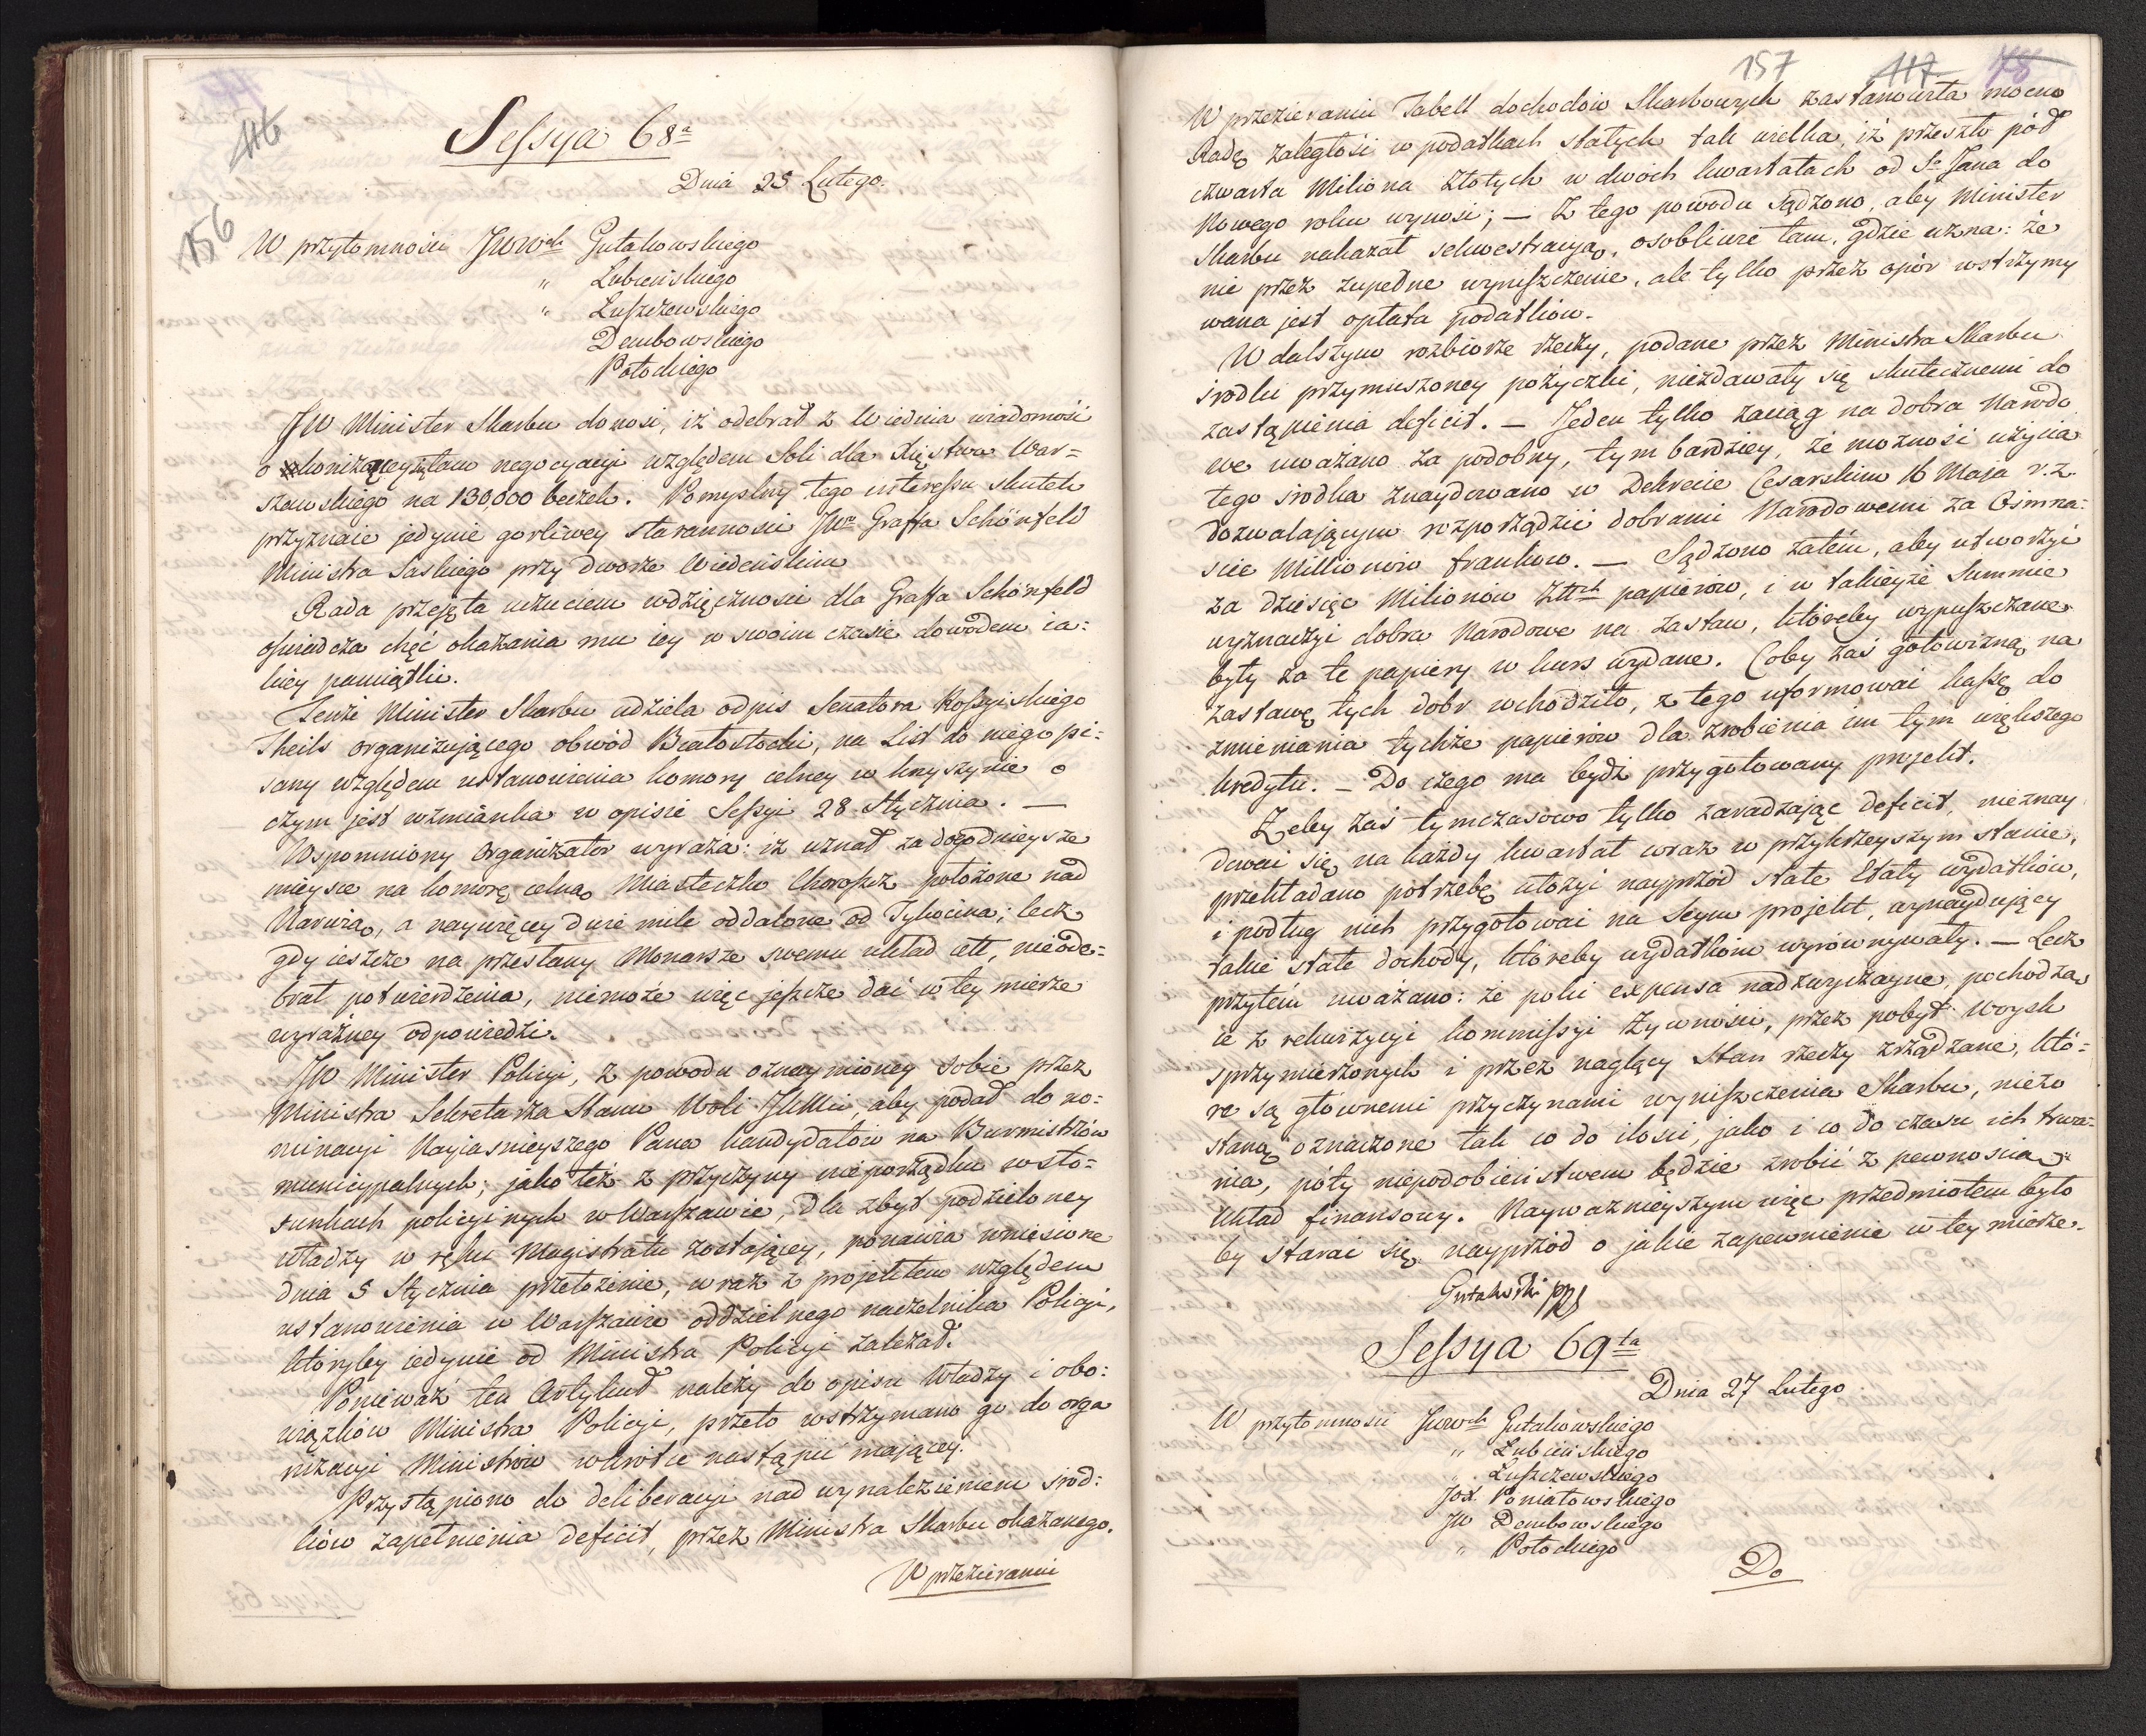 116
156
Sessya 68a
Dnia 25 Lutego.
W przytomności JWWch Gutakowskiego
" Lubieńskiego
" Łuszczewskiego
Dembowskiego
Potockiego
JW Minister Skarbu donosi, iż odebrał z Wiednia wiadomość
o negocyacyi względem Soli dla Xięstwa War=
szawskiego na 130,000 beczek. Pomyslny tego interessu skutek
przyznaie jedynie gorliwey staranności JWo Graffa Schönfeld
Ministra Saskiego przy dworze Wiedeńskim
Rada przejęta uczuciem wdzięczności dla Graffa Schönfeld
oswiadcza chęć okazania mu iey w swoim czasie dowodem ia:
kiey pamiątki.
Tenże Minister Skarbu udziela odpis Senatora Rossyiskiego
Theils organizującego obwód Białostocki, na List do niego pi:
sany względem ustanowienia komory celney w Knyszynie o
czym jest wzmianka w opisie Sessyi 28 Stycznia. —
Wspomniony Organizator wyraża: iż uznał za dogodnieysze
mieysce na komorę celną Miasteczko Choroszcz położone nad
Narwią, a naywięcey dwie mile oddalone od Tykocina; lecz
gdy ieszcze na przesłany Monarsze swemu układ cełł, nieode=
brał potwierdzenia, niemoże więc jeszcze dać w tey mierze
wyraźney odpowiedzi.
JW Minister Policyi, z powodu oznaymioney sobie przez
Ministra Sekretarza Stanu Woli JKMci, aby podał do no:
minacyi Nayjasnieyszego Pana kandydatów na Burmistrzów
municypalnych; jako też z przyczyny nieporządku w sto=
sunkach policyinych w Warszawie, dla zbyt podzieloney
władzy w ręku Magistratu zostającey, ponawia wniesione
dnia 5 Stycznia przełożenie, wraz z projektem względem
ustanowienia w Warszawie oddzielnego naczelnika Policyi,
któryby iedynie od Ministra Policyi zależał.
Ponieważ ten Artykuł należy do opisu Władzy i obo:
wiązków Ministra Policyi, przeto wstrzymano go do orga
nizacyi Ministrów wkrótce nastąpić mającey.
Przystąpiono do deliberacyi nad wynalezieniem środ:
ków zapełnienia deficit, przez Ministra Skarbu okazanego.
W przezieraniu
157 117 78
W przezieraniu Tabell dochodów Skarbowych zastanowiła mocno
Radę zaległość w podatkach stałych tak wielka, iż przeszło pół
czwarta Miliona złotych w dwóch kwartałach od So Jana do
Nowego roku wynosi; — Z tego powodu sądzono, aby Minister
Skarbu nakazał sekwestracyą, osobliwie tam, gdzie uzna: że
nie przez zupełne wyniszczenie, ale tylko przez opór wstrzymy
wana jest opłata podatków.
W dalszym rozbiorze rzeczy, podane przez Ministra Skarbu
środki przymuszoney pożyczki, niezdawały się skutecznemi do
zastąpienia deficit. — Jeden tylko zaciąg na dobra Narodo
we uważano za podobny, tym bardziey, że możność użycia
tego środka znaydowano w Dekrecie Cesarskim 16 Maja r. z.
dozwalającym rozporządzić dobrami Narodowemi za Osmna:
scie Millionów franków. — Sądzono zatém, aby utworzyć
za dziesięć Milionów Złłch papierów, i w takieyże Summie
wyznaczyć dobra Narodowe na zastaw, któreby wypuszczane
były za te papiery w kurs wydane. Coby zaś gotowizną na
zastawę tych dobr wchodziło, z tego uformować kassę do
zmieniania tychże papierów dla zrobienia im tym większego
kredytu. — Do czego ma bydź przygotowany projekt.
Żeby zaś tymczasowo tylko zaradzając deficit, nieznay
dować się na każdy kwartał wraz w przykrzeyszym stanie,
przekładano potrzebę ułożyć nayprzód stałe Etaty wydatków,
i podług nich przygotować na Seym projekt, wynaydujący
takie stałe dochody, któreby wydatkom wyrównywały. — Lecz
przytém uważano: że póki expensa nadzwyczayne, pochodzą
ce z rekwizycyi kommissyi żywności, przez pobyt Woysk
sprzymierzonych i przez naglący Stan rzeczy zrządzane, któ=
re są głównemi przyczynami wyniszczenia Skarbu, niezo
staną oznaczone tak co do ilości, jako i co do czasu ich trwa:
nia, póty niepodobieństwem będzie zrobić z pewnością
Układ finansowy. Nayważnieyszym więc przedmiotem było
by starać się nayprzód o jakie zapewnienie w tey mierze.
Gutakowski
Sessya 69ta
Dnia 27 Lutego
W przytomności JWWch Gutakowskiego
" Lubieńskiego
" Łuszczewskiego
JOX. Poniatowskiego
JW Dembowskiego
" Potockiego
Do